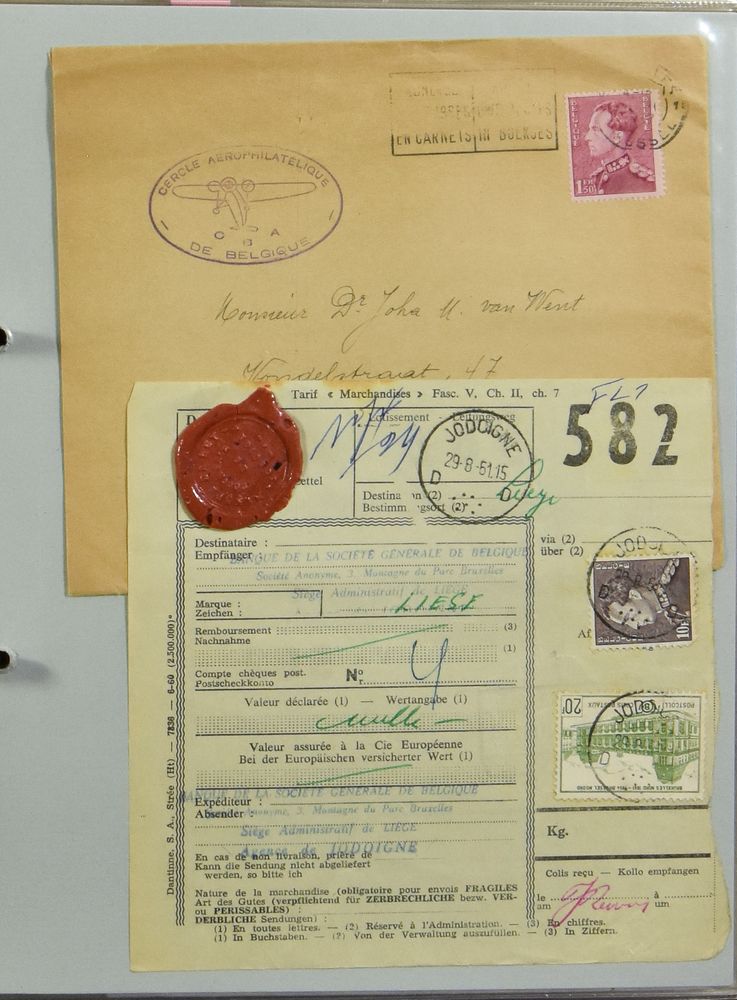 EN CARNETS IN BOEKJES
BELGIQUE BELGIE
1FR 50
CERCLE AÉROPHILATÉLIQUE
C B A
DE BELGIQUE
Monsieur Dr. Joha M. van Went
Vondelstraat, 47
Tarif « Marchandises » Fasc. V, Ch. II, ch. 7
582
JODOIGNE
29-8-61.15
D D
Leitungsweg
Destina n (2)
Bestimm gsort (2)
Liège
via (2)
über (2)
Destinataire :
Empfänger :
BANQUE DE LA SOCIÉTÉ GÉNÉRALE DE BELGIQUE
Société Anonyme, 3, Montagne du Parc Bruxelles
Siège Administratif de LIÈGE
Marque :
Zeichen :
LIEGE
Remboursement (3)
Nachnahme
(1)
Compte chèques post.
Postscheckkonto
Nº
r
Valeur déclarée (1) — Wertangabe (1)
nulle —
Valeur assurée à la Cie Européenne
Bei der Europäischen versicherter Wert (1)
BANQUE DE LA SOCIÉTÉ GÉNÉRALE DE BELGIQUE
Expéditeur :
Absender :
Anonyme, 3, Montagne du Parc Bruxelles
Siège Administratif de LIÈGE
Agence de JODOIGNE
En cas de non livraison, prière de
Kann die Sendung nicht abgeliefert
werden, so bitte ich
Nature de la marchandise (obligatoire pour envois FRAGILES
Art des Gutes (verpflichtend für ZERBRECHLICHE bezw. VER-
ou PERISSABLES) :
DERBLICHE Sendungen) :
(1) En toutes lettres. — (2) Réservé à l'Administration. — (3) En chiffres.
(1) In Buchstaben. — (2) Von der Verwaltung auszufüllen. — (3) In Ziffern.
Dantinne, S. A., Strée (Ht) — 7836 — 6-60 (2.500.000)*
10F
JODOI
20F
POSTCOLLI COLIS POSTAUX
JODOI
Kg.
Colis reçu — Kollo empfangen
le à
am um